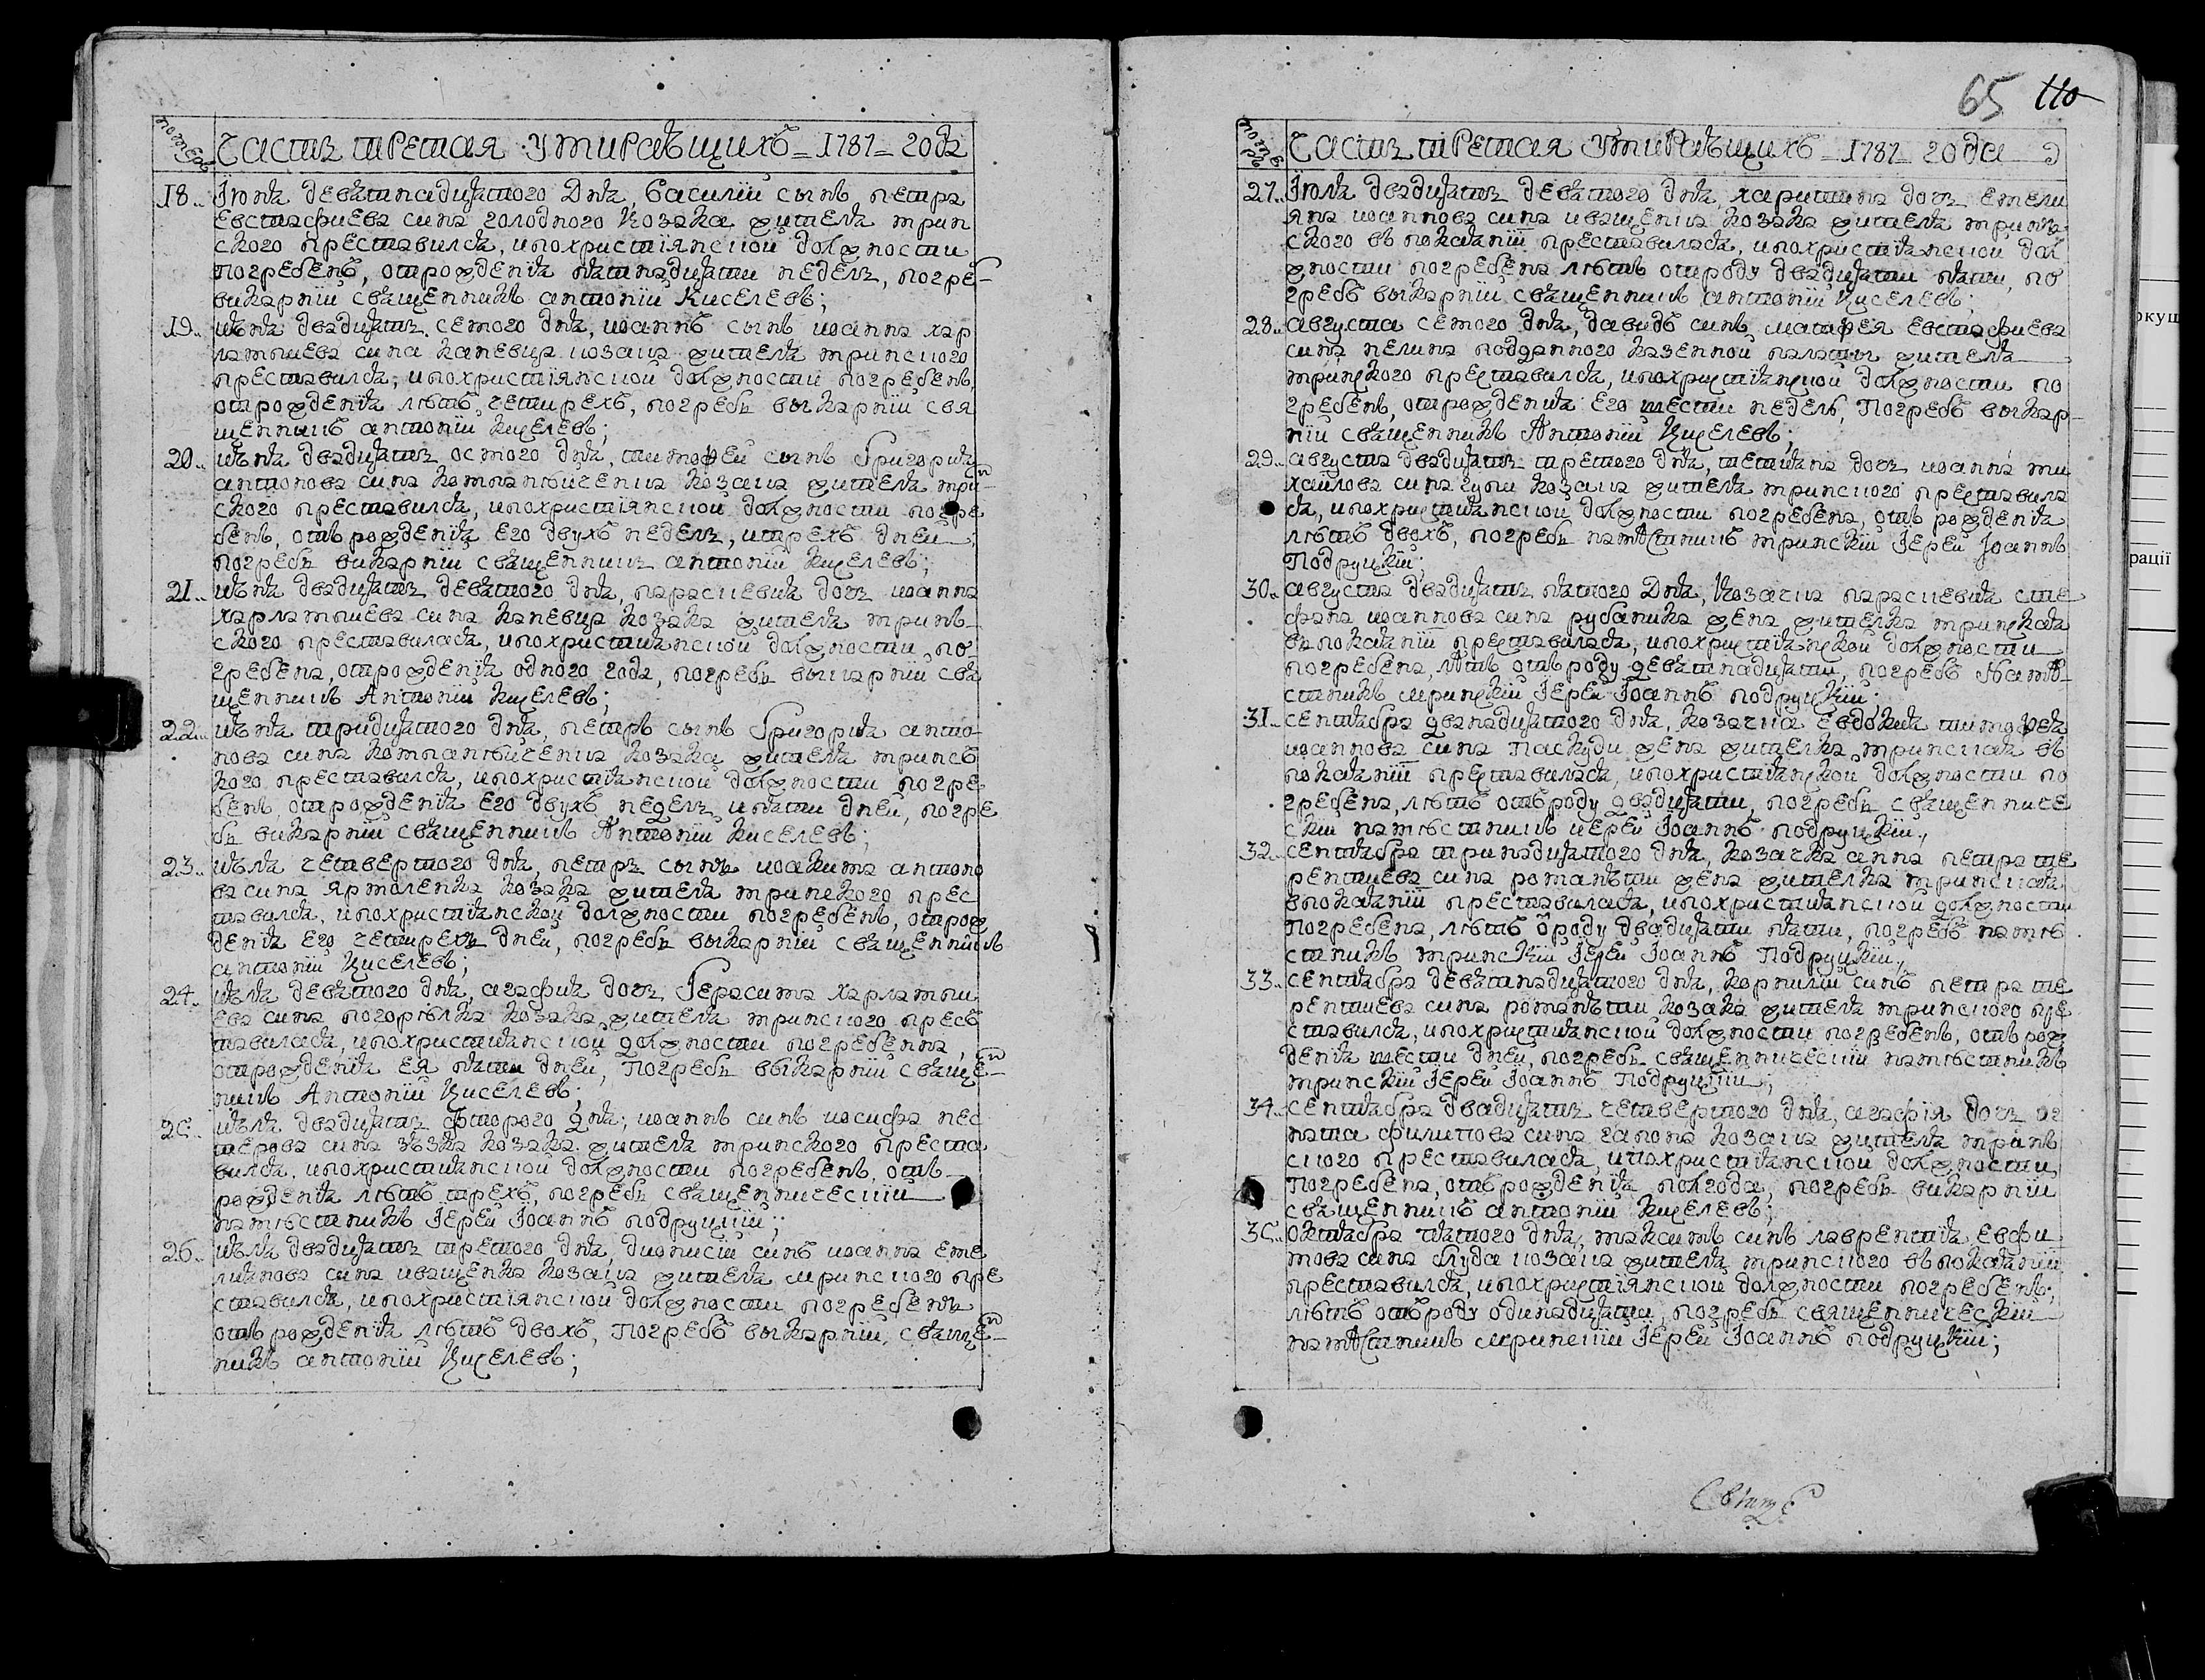 номеръ
Частъ третая умиравщихъ 1787 года
18.. Іюня деветнадцятого дня, Василий сынъ петра
Евстафиева сина голодного козака жителя мрин
ского преставился, и по християнской должности
погребенъ, отрождения пятнадцяти неделъ, погребъ
викарний священникъ антоний Киселевъ;
19.. июня двадцятъ семого дня, иоаннъ сынъ иоанна хар
лампиева сина каневца козака жителя мринского
преставился, и по християнской должности погребенъ,
отрождения лѣтъ четирехъ, погребъ выкарний свя
щенникъ антоний киселевъ;
20.. июня двадцятъ осмого дня, тимофей сынъ Григория
антонова сина козака жителя мрин
ского преставился, и по християнской должности погре
бенъ, отъ рождения его двухъ неделъ, итрехъ дней
погребъ викарний священникъ антоний киселевъ;
21.. июня двадцятъ девятого дня, параскевия дочъ иоанна
харлампиева сина каневца козака жителя мринъ
ского преставилася, и по християнской должности, по
гребена, отрождения одного года, погребъ выкарний свя
щенникъ Антоний киселевъ;
22.. июня тридцятого дня, петръ сынъ Григория анто
нова сина козака жителя мринсъ
кого преставился, и по християнской должности погре
бенъ, отрождения его двухъ неделъ, и пяти дней, погре
бъ викарний священникъ Антоний киселевъ;
23.. июля четвертого дня, петръ сынъ иоакима антоно
ва сина ярмоленка козака жителя мринского прес
тавился, и по християнской должности погребенъ, отрож
дения его четирехъ дней, погребъ выкарний священникъ
антоний киселевъ;
24.. июля девятого дня, агафия дочъ Герасима харлампи
ева сина погорѣлка козака жителя мринского пресъ
тавилася, и по християнской должности погребенна,
отрождения ея пяти дней, погребъ выкарний священ
никъ Антоний киселевъ;
25.. июля двадцятъ фторого дня, иоаннъ синъ иосифа нес
терова сина зѣзка козака жителя мринского преста
вился, и по християнской должности погребенъ, отъ
рождения лѣтъ трехъ, погребъ священнический
намѣстникъ Іерей Іоаннъ подруцкий;
26.. июля двадцятъ третого дня, дионисий синъ иоанна еме
лиянова сина иващенка козака жителя мринского пре
ставился, и по християнской должности погребенъ
отъ рождения лѣтъ двохъ, погребъ выкарний священ
никъ антоний киселевъ;
65 110
номеръ
Частъ третая умиравщихъ 1787 года
27.. Іюля двадцятъ девятого дня, харитина дочъ емели
яна иоаннова сина иващенка козака жителя мринъ
ского въ покаянии преставилася, и по християнской дол
жности погребена лѣтъ отроду двадцяти пяти, по
гребъ выкарний священникъ антоний киселевъ;
28.. августа семого дня, давидъ синъ матфея евстафиева
сина нелипа подданного казенной палаты жителя
мринского преставился, и по християнской должности по
гребенъ, отрождения его шести неделъ, погребъ выкар
ний священникъ Антоний киселевъ;
29.. августа двадцятъ третого дня, татияна дочъ иоанна ми
хайлова сина козака жителя мринского преставила
ся, и по християнской должности погребена, отъ рождения
лѣтъ двохъ, погребъ намѣстникъ мринский Іерей Іоаннъ
Подруцкий;
30.. августа двадцятъ пятого дня, козачка параскевия сте
фана иоаннова сина рубаника жена жителка мринская
въ покаянии преставилася, и по християнской должности
погребена, лѣтъ отъ роду деветнадцяти, погребъ намѣ
стникъ мринский Іерей Іоаннъ подруцкий;
31.. септября дванадцятого дня, козачка евдокия тимофея
иоаннова сина паскуди жена жителка мринская въ
покаянии преставилася, и по християнской должности по
гребена, лѣтъ отъ роду двадцяти, погребъ священниче
ский намѣстникъ иерей Іоаннъ подруцкий;
32.. септября тринадцятого дня, козачка анна петра те
рентиева сина романѣти жена жителка мринская
впокаянии преставилася, и по християнской должности
погребена, лѣтъ ѿроду двадцяти пяти, погребъ намѣ
стникъ мринский Іерей Іоаннъ Подруцкий;
33.. септября деветнадцятого дня, корнилий синъ петра те
рентиева сина романѣти козака жителя мринского пре
ставился, и по християнской должности погребенъ, отъ рож
дения шести дней, погребъ священнический намѣстникъ
мринский Іерей Іоаннъ Подруцкий;
34.. септября двадцятъ четвертого дня, агафия дочъ иг
ната филипова сина гапона козака жителя мринъ
ского преставилася, и по християнской должности
погребена, отъ рождения полгода, погребъ викарний
священникъ антоний киселевъ;
35.. октября пятого дня, максимъ синъ лаврентия евфи
мова сина блуда козака жителя мринского въ покаянии
преставился, и по християнской должности погребенъ,
лѣтъ отъ роду одинадцяти, погребъ священнический
намѣстникъ мринский Іерей Іоаннъ подруцкий;